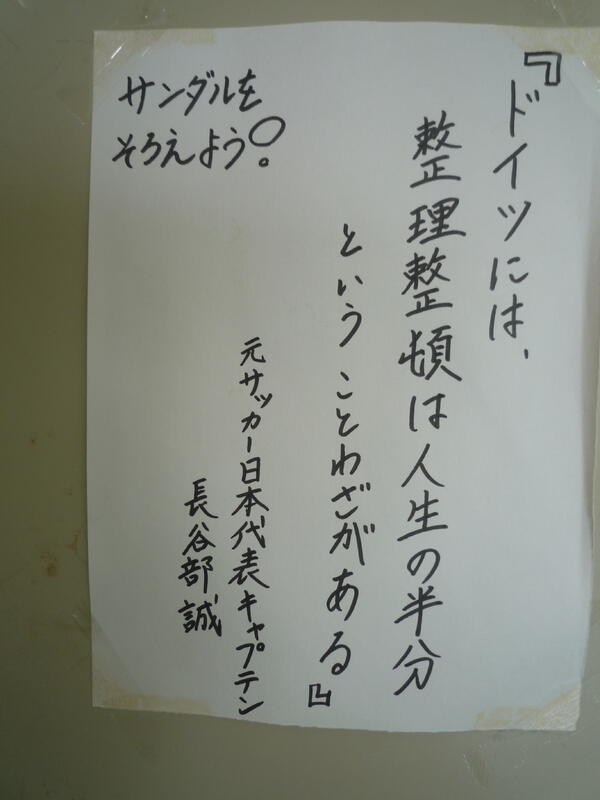 『ドイツには、
整理整頓は人生の半分
ということわざがある』
元サッカー日本代表キャプテン
長谷部誠
サンダルを
そろえよう！